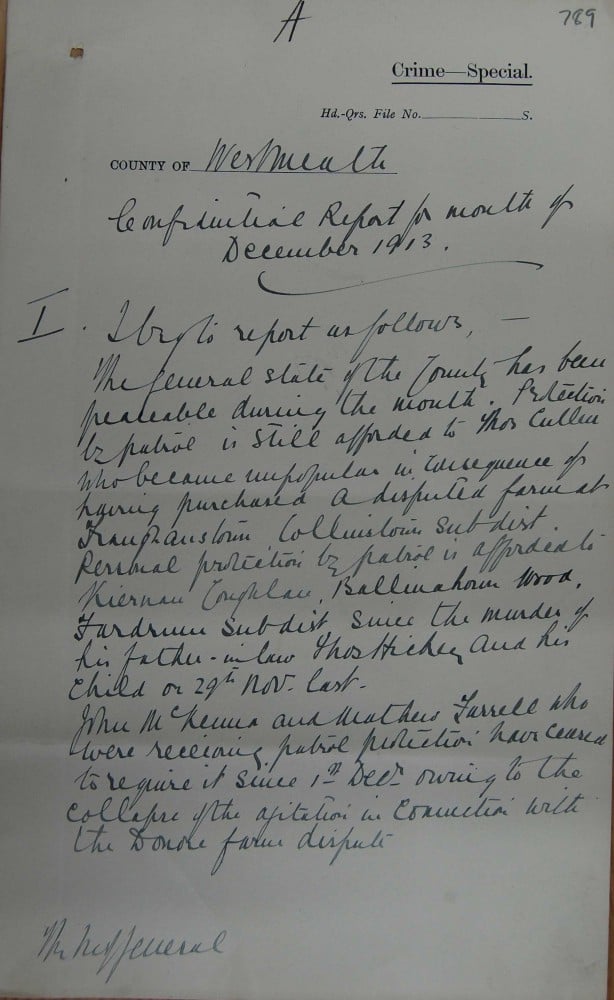 A
789
Crime—Special.
Hd.-Qrs. File No. S.
COUNTY OF Westmeath
Confidential Report for month of
December 1913.
I. I beg to report as follows, —
The General State of the County has been
peaceable during the month. Protection
by patrol is still afforded to Thos Cullen
who became unpopular in consequence of
having purchased a disputed farm at
Collinstown Subdist.
Personal protection by patrol is afforded to
Kiernan Coughlan, Ballinahown Wood,
Fardrum Subdist since the murder of
his father-in-law Thos Hickey and his
child on 29th Nov. last.
John McKenna and Mathew Farrell who
were receiving patrol protection have ceased
to require it since 1st Decr owing to the
collapse of the agitation in connection with
the Donore farm dispute
The Insp General